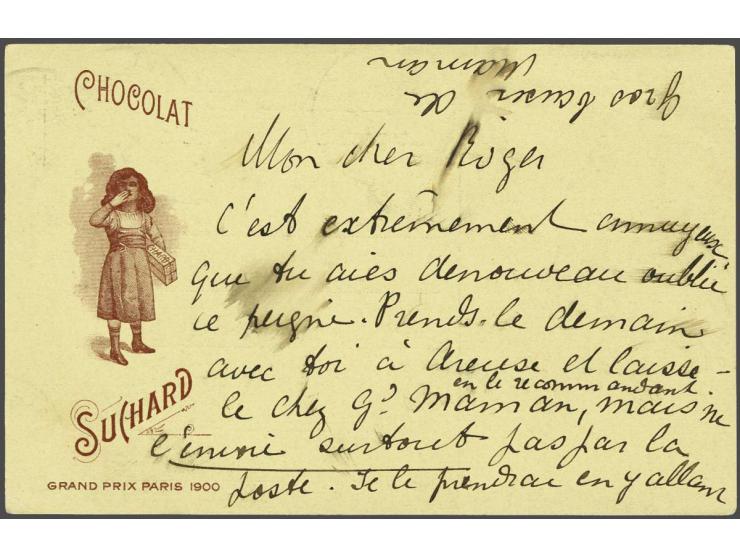 CHOCOLAT
SUCHARD
GRAND PRIX PARIS 1900
Mon cher Roger
C'est extrêmement ennuyeux
que tu aies denouveau oublié
ce peigne. Prends-le demain
avec toi à Areuse et laisse-
en le recommandant.
le chez Gd Maman, mais ne
l'envoie surtout pas par la
poste. Je le prendrai en y allant
Gros baiser de
Maman